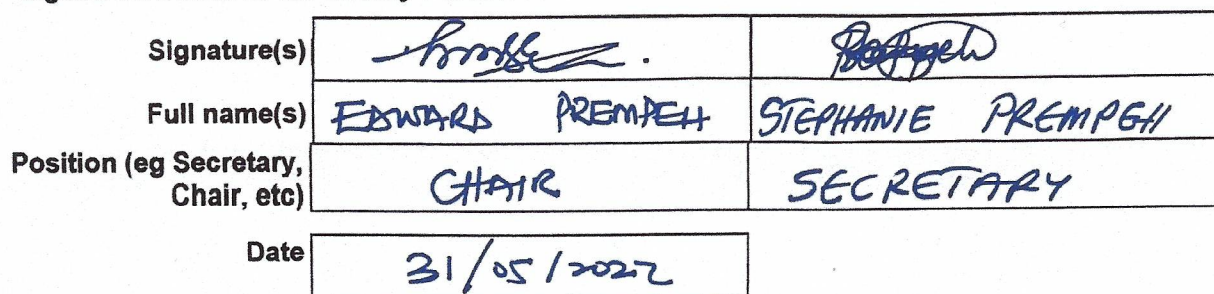 Signature(s)
Full name(s) EDWARD PREMPEH STEPHANIE PREMPEH
Position (eg Secretary,
Chair, etc) CHAIR SECRETARY
Date 31/05/2022